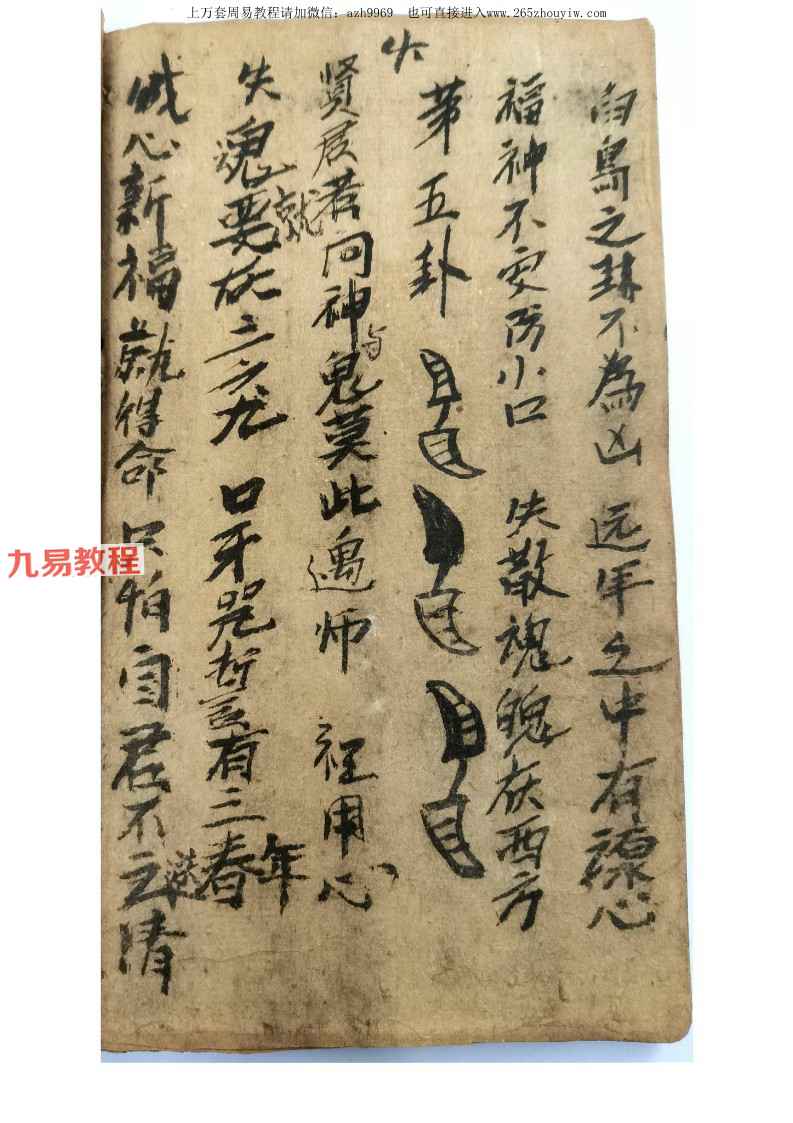 上万套周易教程请加微信：azh9969　也可直接进入www.265zhouyiw.com
白鳥之卦不為凶 远年之中有愿心
福神不安防小口 失散魂魄在西方
第五卦
失
賢居若问神与鬼莫此遇师 裡用心
失魂要就在二六九 口牙咒哲言有三春年
成心新福就得命 只怕宙君不之清
九易教程